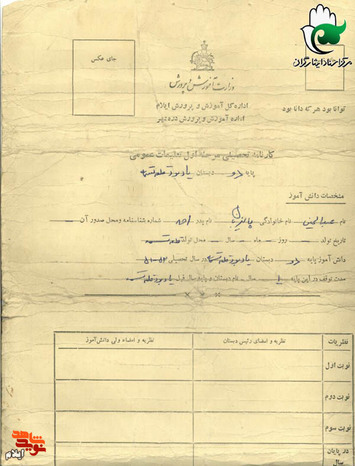 مرکز اسناد ایثارگران
جای عکس
وزارت آموزش و پرورش
توانا بود هر که دانا بود
اداره کل آموزش و پرورش ایلام
اداره آموزش و پرورش دره شهر
کارنامه تحصیلی مرحله اول تعلیمات عمومی
پایه دو دبستان
مشخصات دانش آموز
نام عبدالحسین نام خانوادگی نام پدر شماره شناسنامه ومحل صدور آن
تاریخ تولد روز ماه سال محل تولد
دانش آموز پایه دو دبستان در سال تحصیلی
مدت توقف در این پایه سال نام دبستان و پایه سال قبل
نظریات
نظریه و امضای رئیس دبستان
نظریه و امضاء ولی دانش‌آموز
نوبت اول
نوبت دوم
نوبت سوم
در پایان سال
نوید شاهد
ایلام